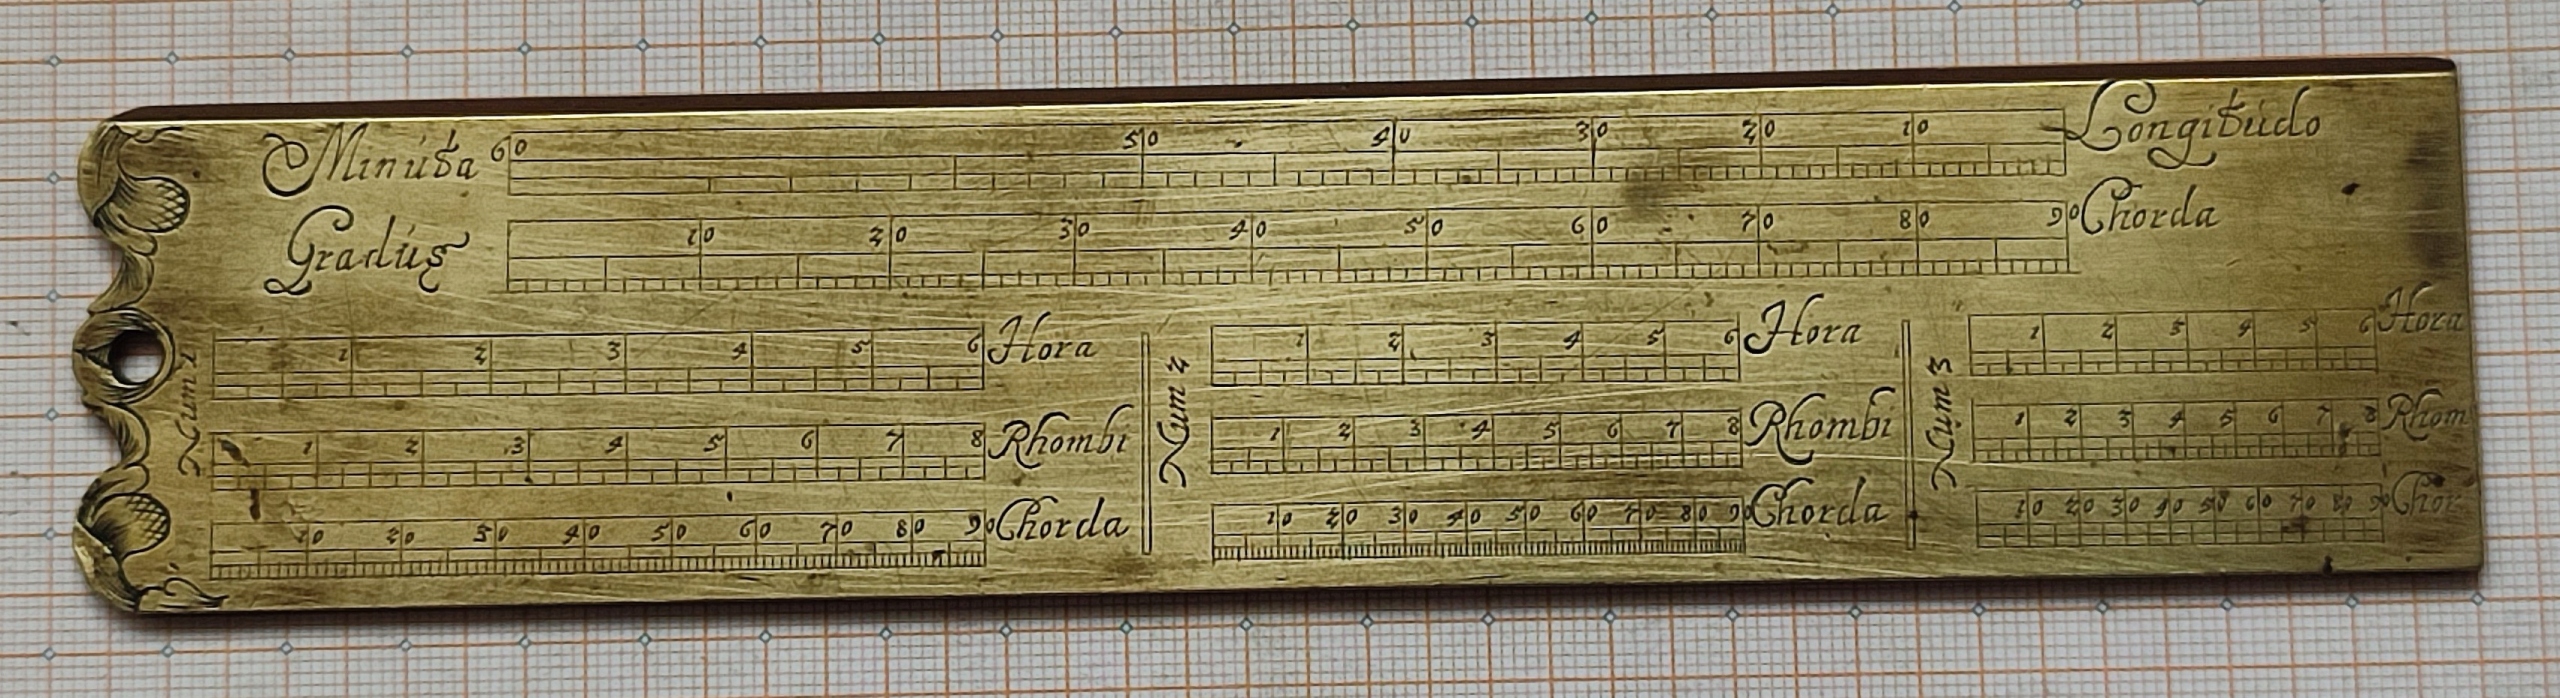 Minúta 60 50 40 30 20 10 Longitúdo
Gradús 10 20 30 40 50 60 70 80 90 Chorda
Num 1
1 2 3 4 5 6 Hora
1 2 3 4 5 6 7 8 Rhombi
10 20 30 40 50 60 70 80 90 Chorda
Num 2
1 2 3 4 5 6 Hora
1 2 3 4 5 6 7 8 Rhombi
10 20 30 40 50 60 70 80 90 Chorda
Num 3
1 2 3 4 5 6 Hora
1 2 3 4 5 6 7 8 Rhom
10 20 30 40 50 60 70 80 90 Chor